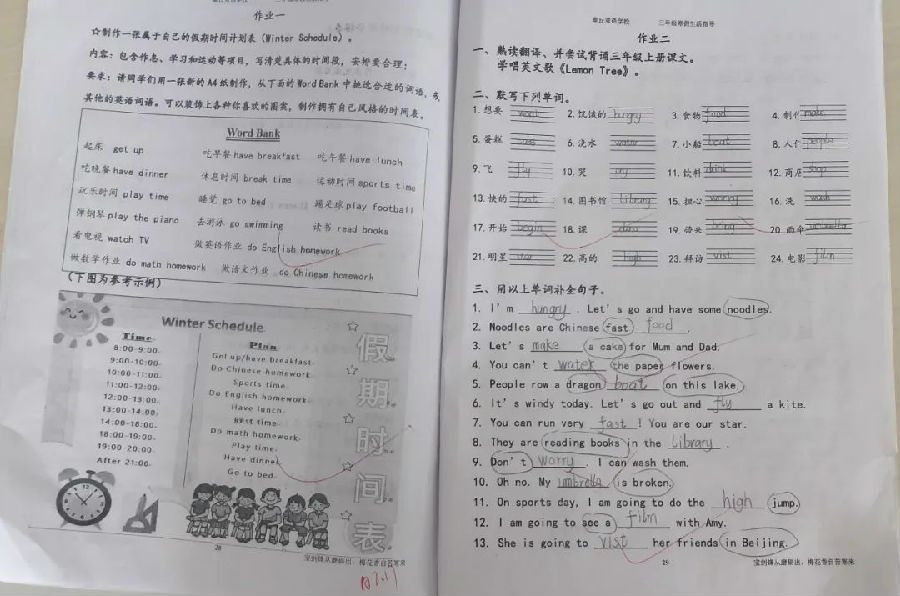 作业一
☆制作一张属于自己的假期时间计划表(Winter Schedule)。
内容:包含作息、学习和运动等项目,写清楚具体的时间段,安排要合理;
要求:请同学们用一张新的A4纸制作,从下面的Word Bank中挑选合适的词语,
其他的英语词语。可以装饰上各种你喜欢的图案,制作拥有自己风格的时间表。
Word Bank
起床 get up 吃早餐 have breakfast 吃午餐 have lunch
吃晚餐 have dinner 休息时间 break time 运动时间 sports time
玩乐时间 play time 睡觉 go to bed 踢足球 play football
弹钢琴 play the piano 去游泳 go swimming 读书 read books
看电视 watch TV 做英语作业 do English homework
做数学作业 do math homework 做语文作业 do Chinese homework
(下图为参考示例)
Winter Schedule
Time Plan
8:00-9:00 Get up/have breakfast
9:00-10:00 Do Chinese homework
10:00-11:00 Sports time
11:00-12:00 Do English homework
12:00-13:00 Have lunch
13:00-14:00 Rest time
14:00-16:00 Do math homework
16:00-19:00 Play time
19:00-20:00 Have dinner
After 21:00 Go to bed
假期时间表
20
宝剑锋从磨砺出,梅花香自苦寒来
三年级寒假生活指导
作业二
一、熟读翻译、并尝试背诵三年级上册课文。
学唱英文歌《Lemon Tree》。
二、默写下列单词。
1. 想要 want 2. 饥饿的 hungry 3. 食物 food 4. 制作 make
5. 蛋糕 6. 浇水 water 7. 小船 boat 8. 人们 people
9. 飞 fly 10. 哭 cry 11. 饮料 drink 12. 商店 shop
13. 快的 fast 14. 图书馆 library 15. 担心 worry 16. 洗 wash
17. 开始 begin 18. 课 19. 带来 bring 20. 雨伞 umbrella
21. 明星 star 22. 高的 high 23. 拜访 vist 24. 电影 film
三、用以上单词补全句子。
1. I'm hungry. Let's go and have some noodles.
2. Noodles are Chinese fast food.
3. Let's make a cake for Mum and Dad.
4. You can't water the paper flowers.
5. People row a dragon boat on this lake.
6. It's windy today. Let's go out and fly a kite.
7. You can run very fast! You are our star.
8. They are reading books in the library.
9. Don't worry. I can wash them.
10. Oh no. My umbrella is broken.
11. On sports day, I am going to do the high jump.
12. I am going to see a film with Amy.
13. She is going to vist her friends in Beijing.
19
宝剑锋从磨砺出,梅花香自苦寒来